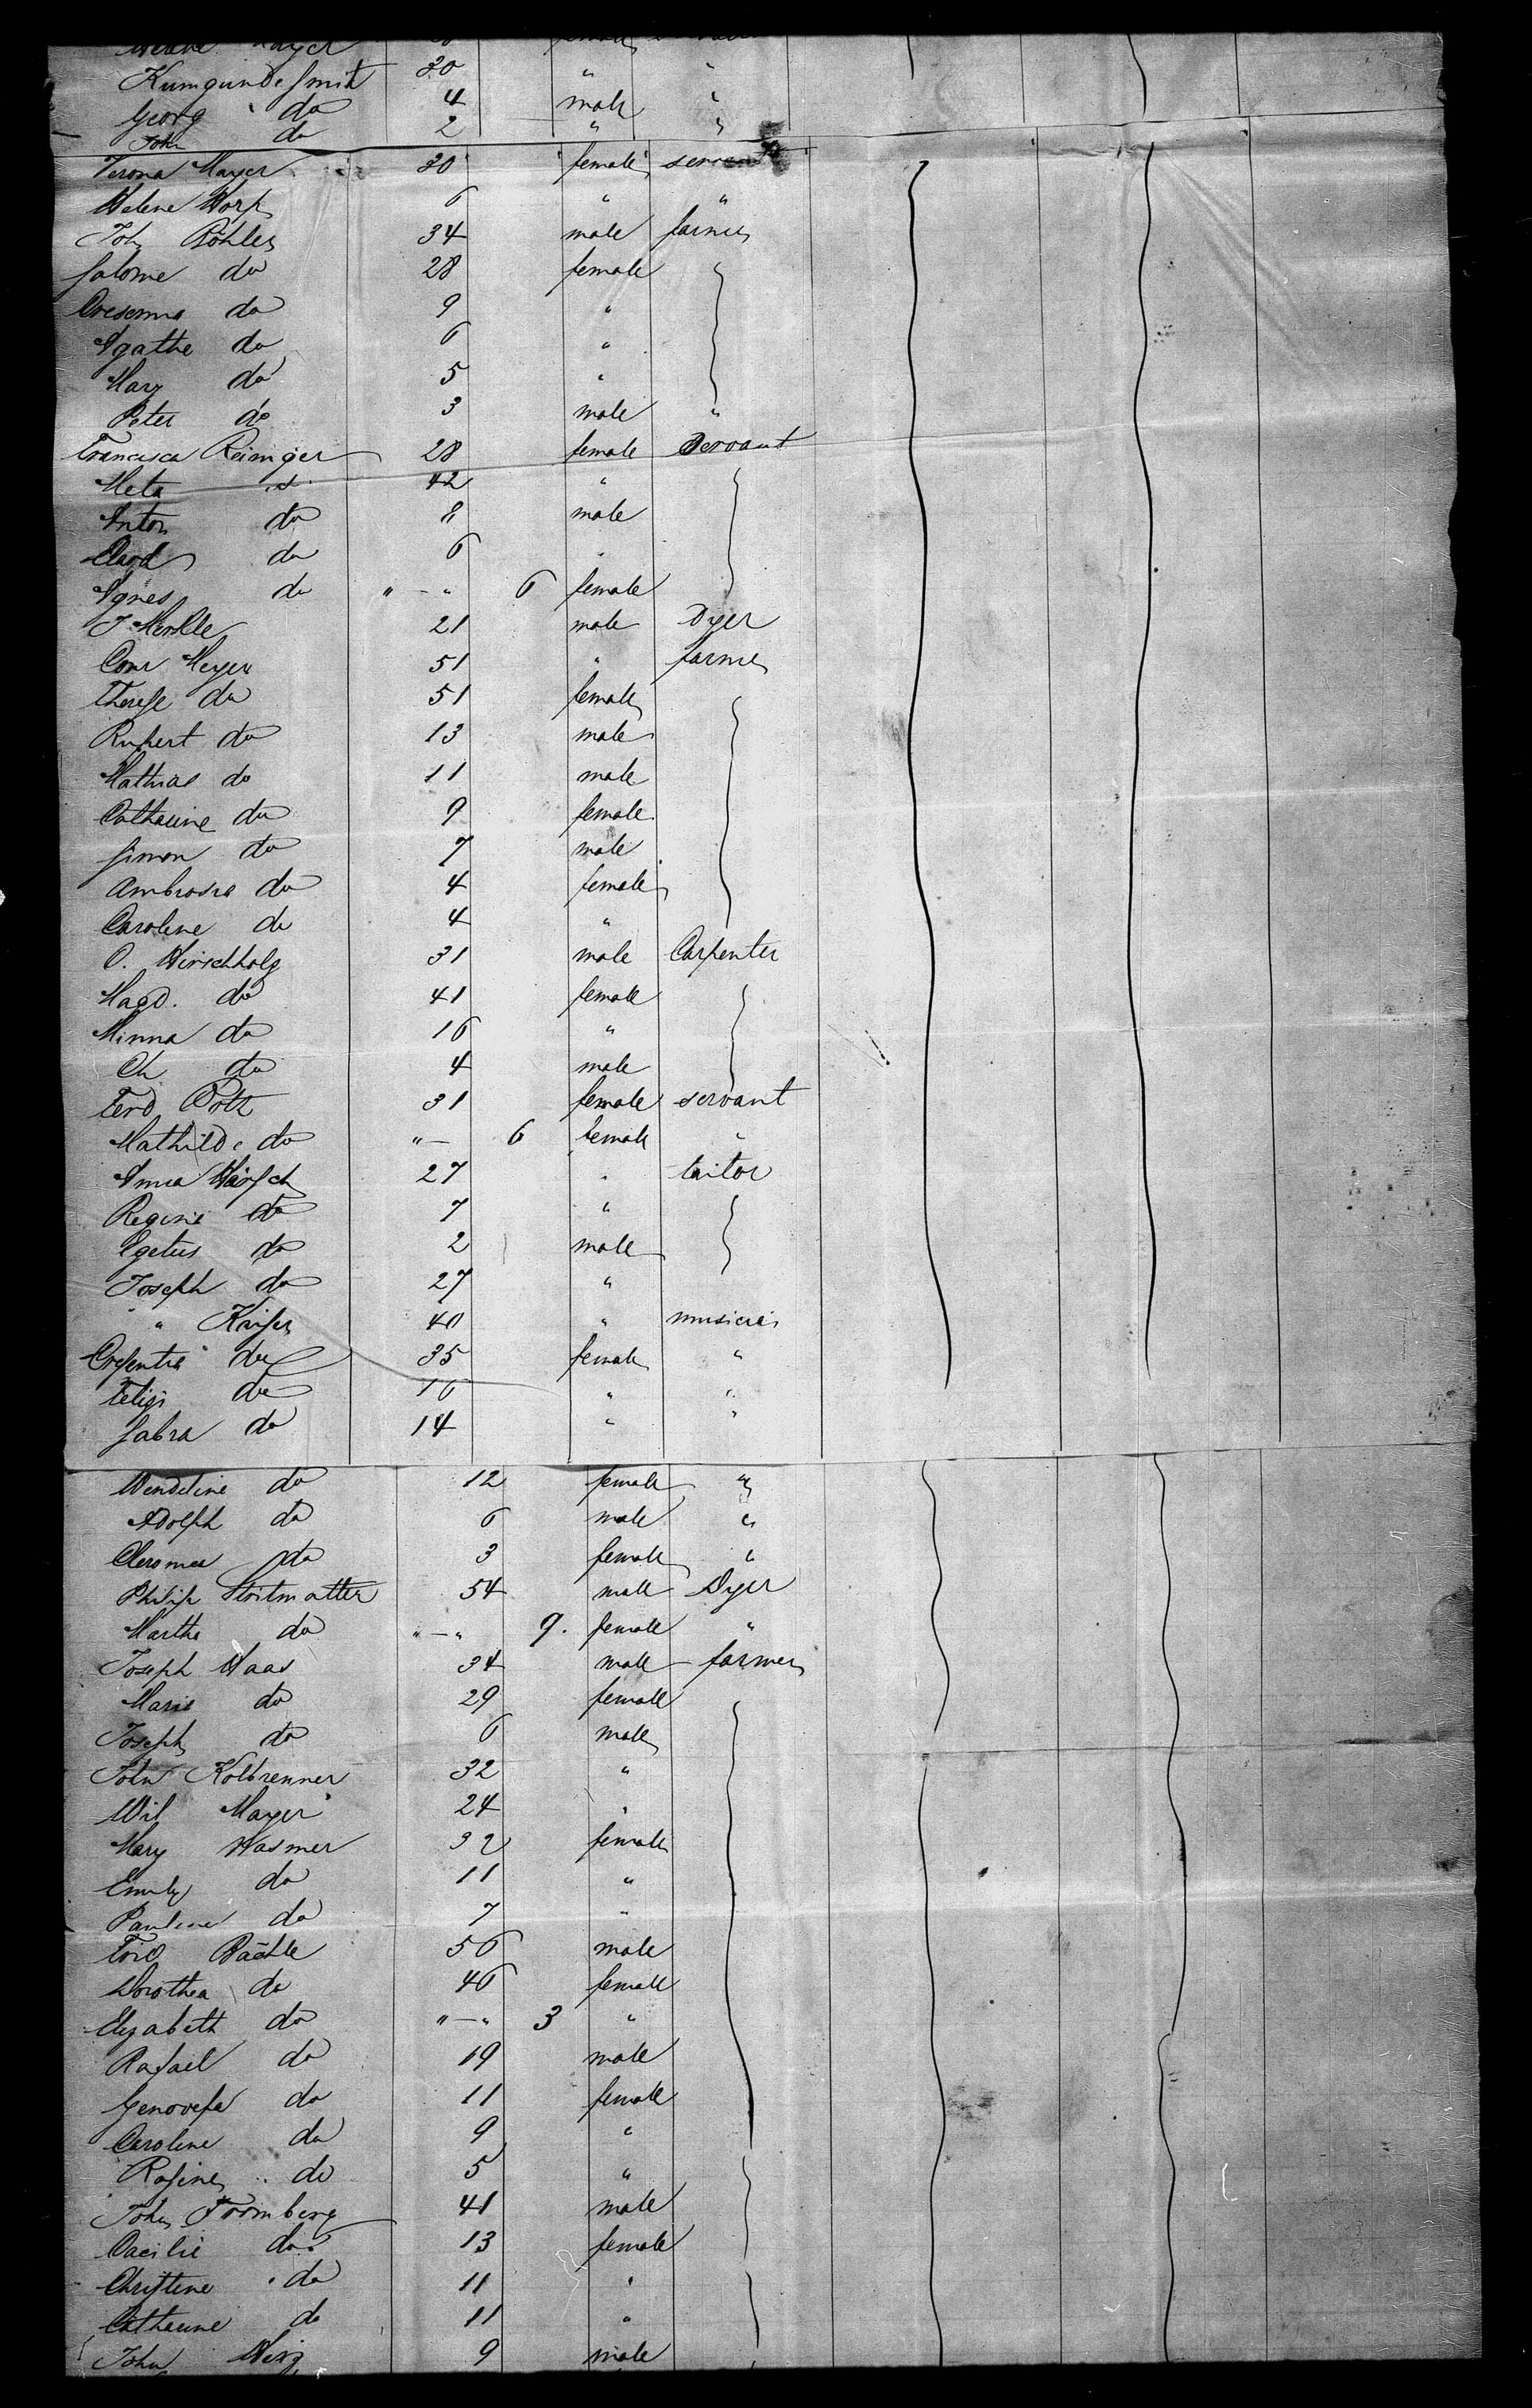 Kumgunde Smith 30 " "
Georg do 4 male "
John do 2 " "
Verona Mayer 30 female servant
Helene Horp 6 " "
Joh Böhler 34 male farmer
Salome do 28 female
Cresenna do 9 "
Agathe do 6 "
Mary do 5 "
Peter do 3 male "
Francisca Reiminger 28 female Servant
Meta do 42 "
Anton do 8 male
do 6 "
Agnes do " - " 6 female
J Merkle 21 male Dyer
Conr Meyer 51 " farmer
Therese do 51 female
Rupert do 13 male
Mathias do 11 male
Catharine do 9 female
Simon do 7 male
Ambrosia do 4 female
Caroline do 4 "
O. Hirschholz 31 male Carpenter
Magd. do 41 female
Minna do 16 "
Ch do 4 male
Ferd Roth 31 female servant
Mathilde do " — 6 female "
Anna Härsch 27 " tailor
Regine do 7 "
do 2 male
Joseph do 27 "
" Kaiser 40 " musician
Cresentia do 35 female "
do 16 " "
Sabra do 14 " "
Wendeline do 12 female "
Adolph do 6 male "
do 3 female "
Philip Stritmatter 54 male Dyer
Martha do " — " 9. female "
Joseph Haas 34 male farmer
Marie do 29 female
Joseph do 6 male
John Kolbrenner 32 "
Wil Mayer 24 "
Mary Wasmer 32 female
Emily do 11 "
Pauline do 7 "
Frid Bächle 56 male
Dorothea do 46 female
Elizabeth do " — " 3 "
Rafael do 19 male
Genovefa do 11 female
Caroline do 9 "
Rosine do 5 "
John Fromberg 41 male
Cacilie do 13 female
Christine do 11 "
Catharine do 11 "
John 9 male